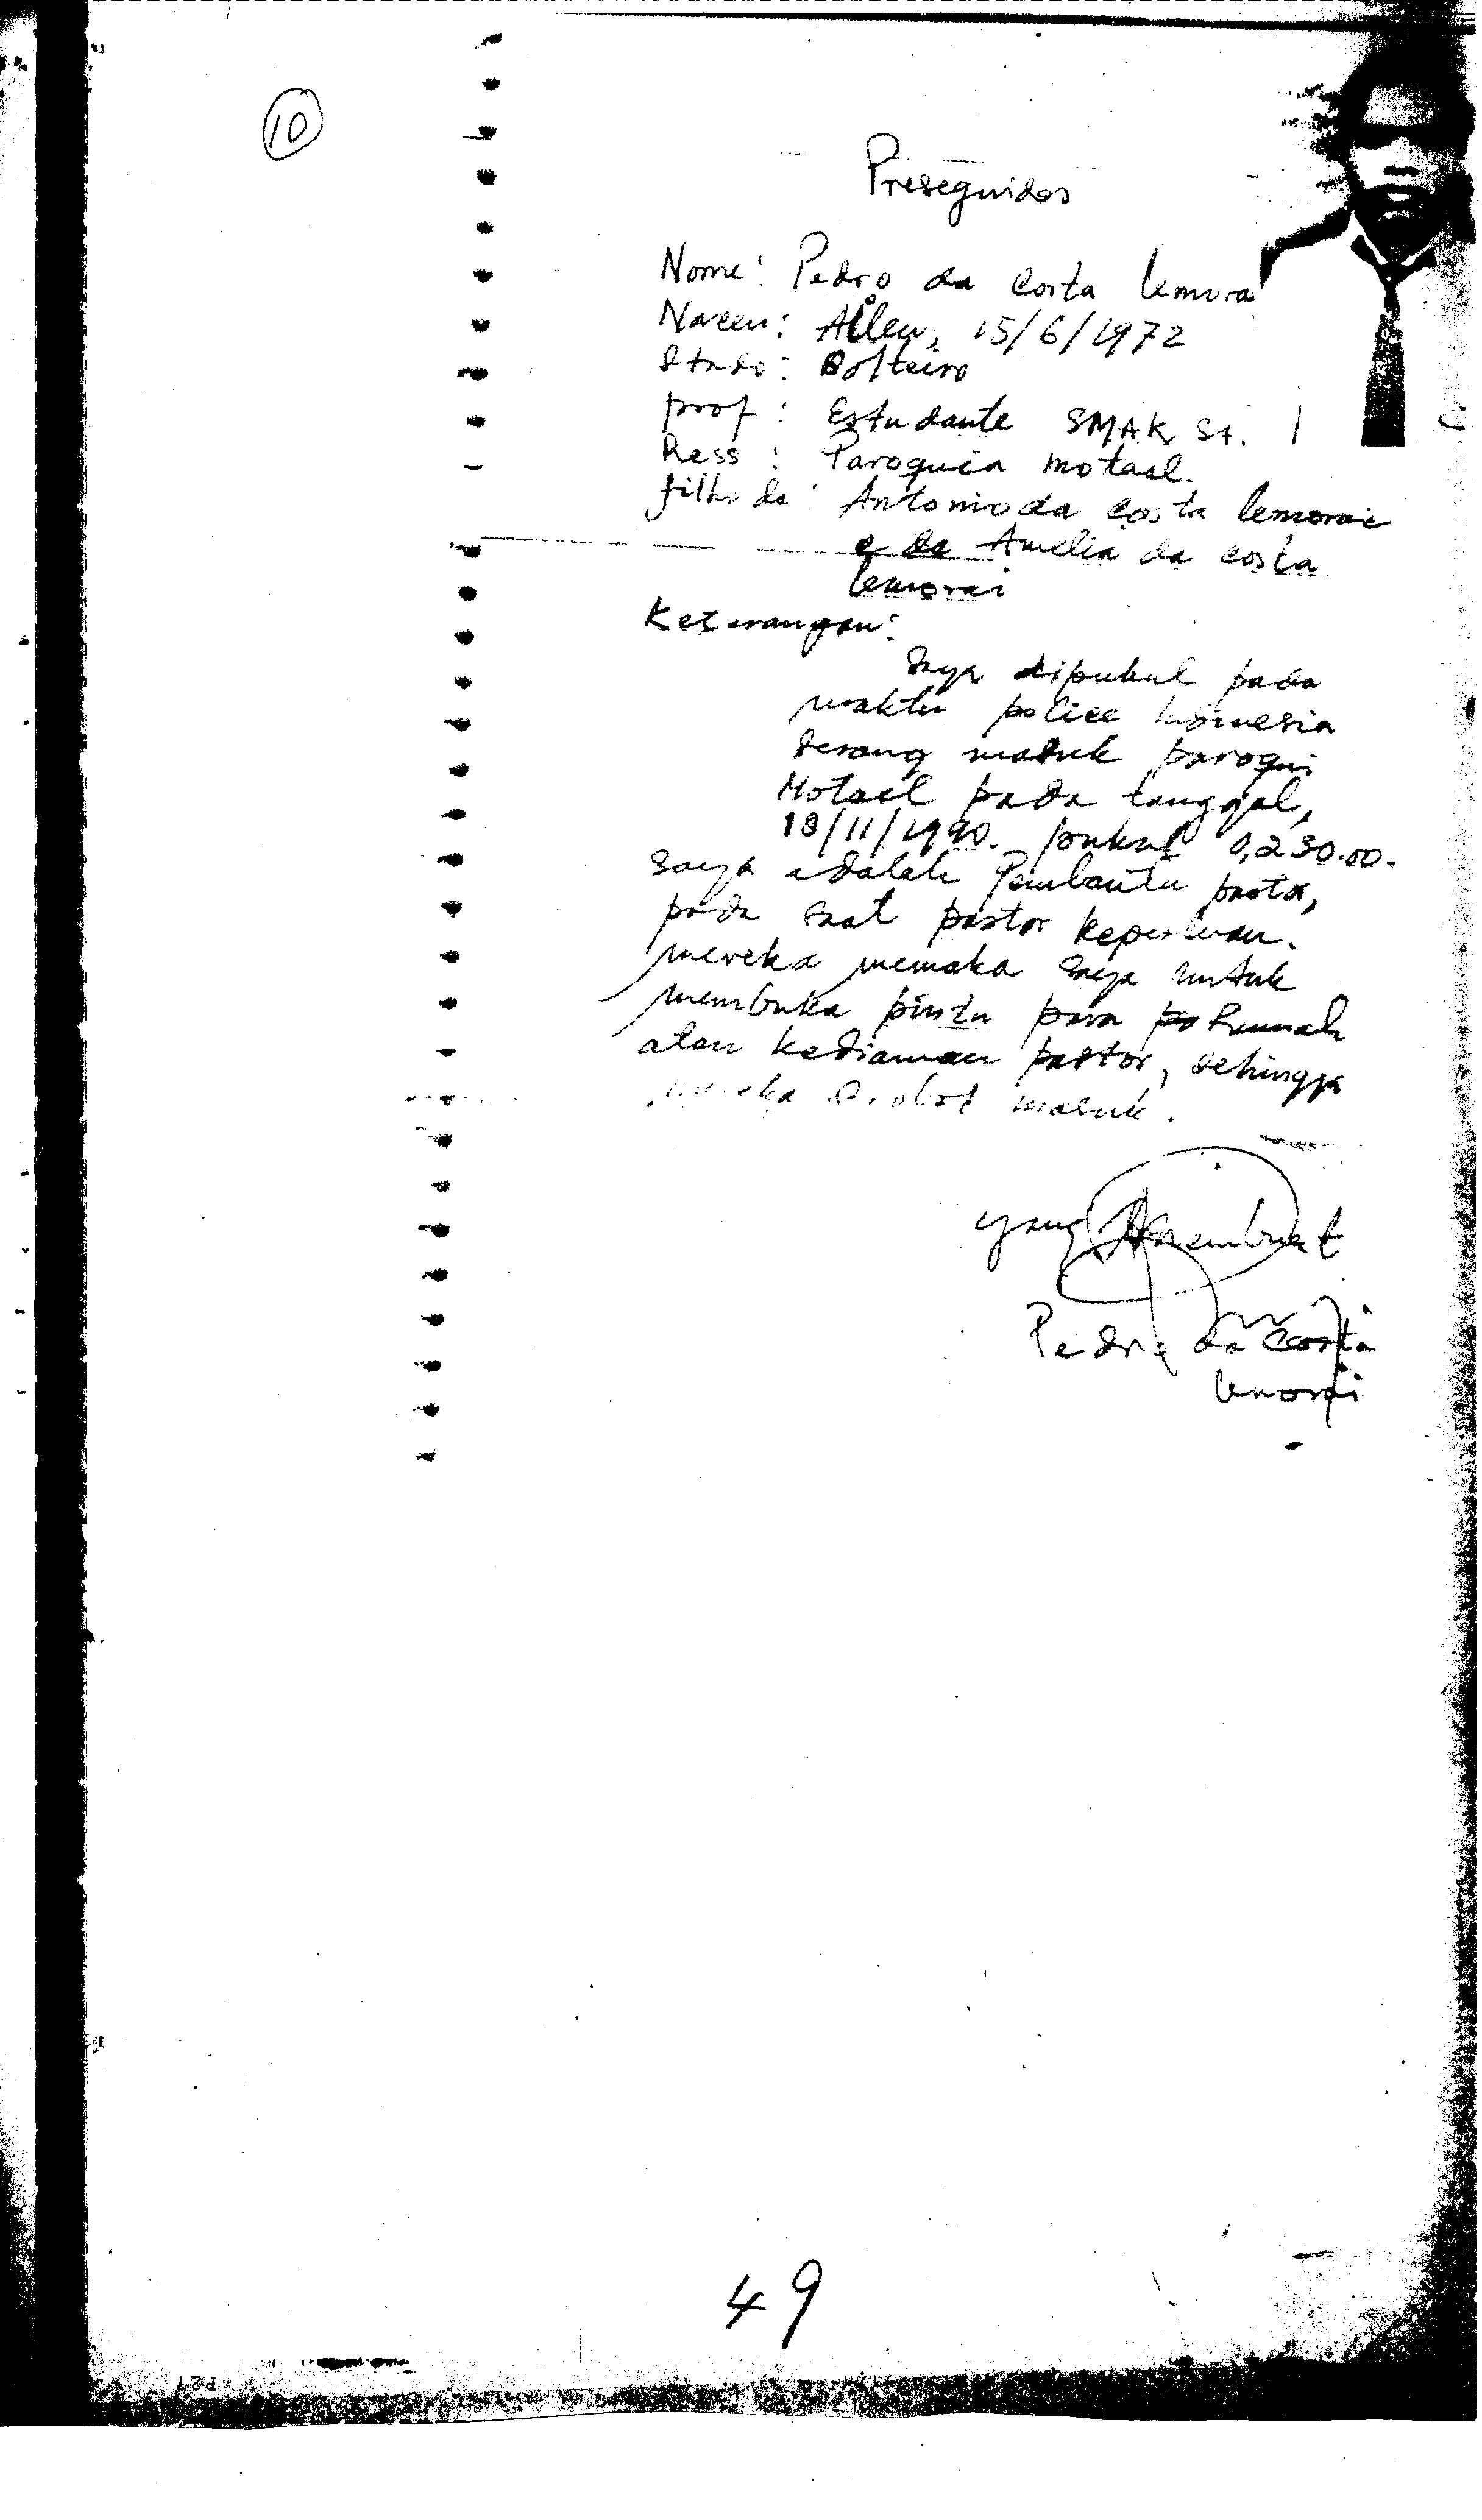 10
Preseguidos
Nome: Pedro da Costa lemora
Naceu: Aileu, 15/6/1972
Stado: Solteiro
prof: Estudante SMAK St.
Ress: Paroquia motael.
filho de: Antonio da Costa lemorai
e de Amelia da costa
lemorai
Keterangan:
Saya dipukul pada
waktu police
serang masuk paroqui
Motael pada tanggal,
18/11/1990. pukul 0,230.00.
Saya adalah Pembantu pastor,
pada saat pastor keperluan.
mereka memaka saya untuk
membuka pintu para Rumah
atau kediaman pastor, sehingga
mereka masuk.
yang membuat
Pedro da Costa
lemorai
49